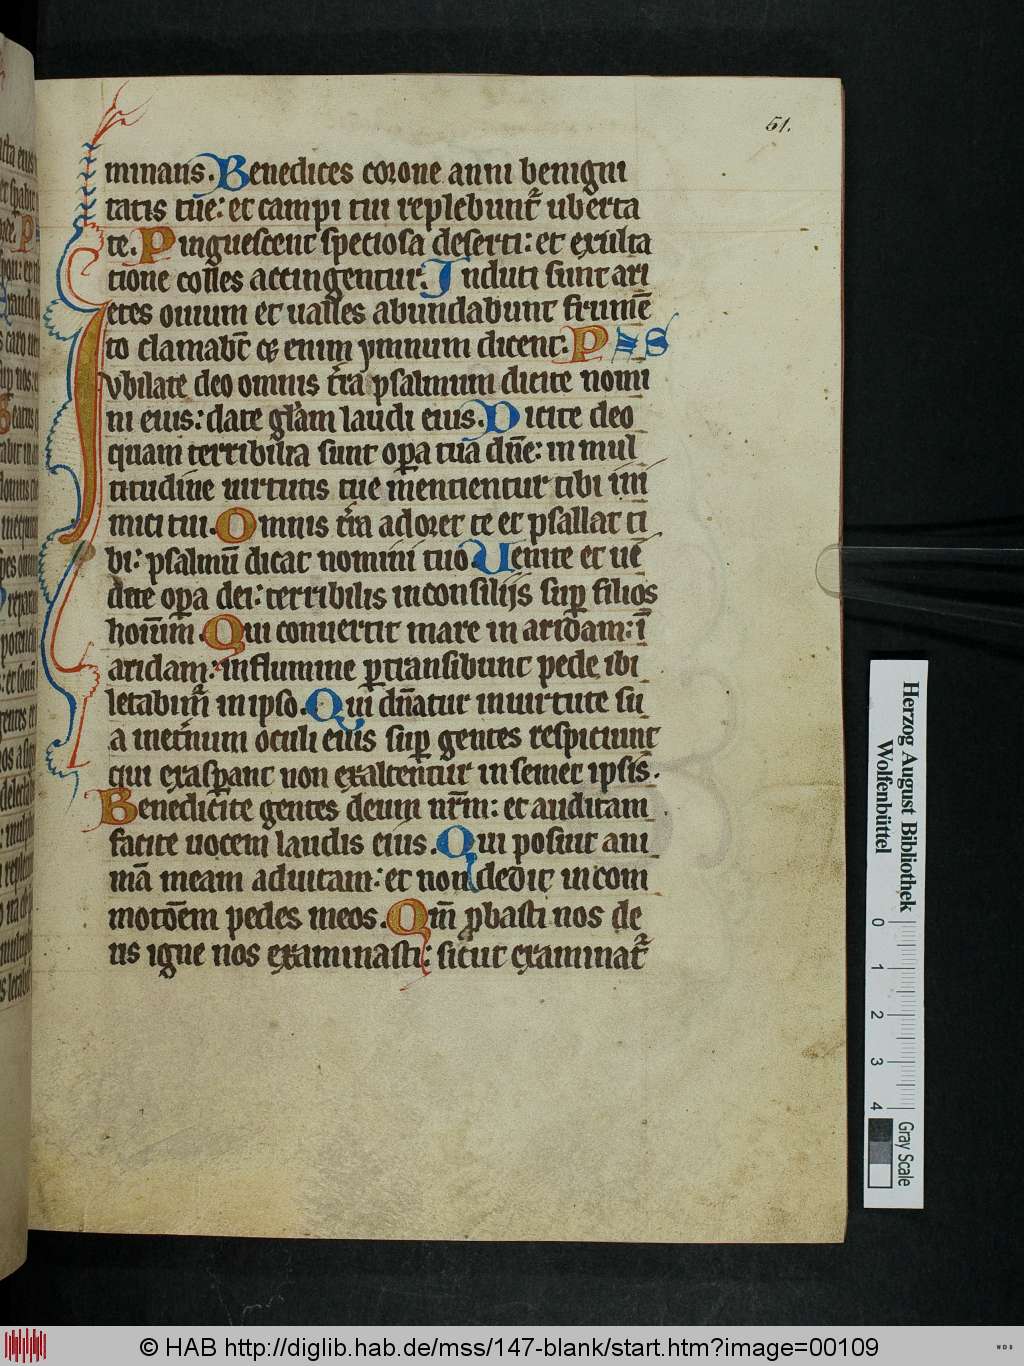 51.
minans. Benedices corone anni benigni
tatis tue: et campi tui replebunt᷑ uberta
te. Pinguescent speciosa deserti: et exulta
tione colles accingentur. Induti sunt ari
etes ouium et ualles abundabunt frumē
to clamabūt eten̄ ymnum dicent. PS
Jvbilate deo omnis t̄ra psalmum dicite nomi
ni eius: date gl̄am laudi eius. Dicite deo
quam terribilia sunt oꝑa tua dn̄e: in mul
titudine uirtutis tue mentientur tibi ini
mici tui. Omnis t̄ra adoret te et psallat ti
bi: psalmū dicat nomini tuo. Uenite et ui
dete oꝑa dei: terribilis in consilijs suꝑ filios
hoīnum. Qui conuertit mare in aridam: ī
aridam: in flumine ꝑtransibunt pede ibi
letabim᷑ in ipso. Qui dn̄atur in uirtute su
a in et̄num oculi eius suꝑ gentes respiciunt
qui exasꝑant non exaltentur in semet ipsis.
Benedicite gentes deum nr̄m: et auditam
facite uocem laudis eius. Qui posuit ani
mā meam ad uitam: et non dedit in com
motōem pedes meos. Qm̄ ꝓbasti nos de
us igne nos examinasti: sicut examinat᷑
Herzog August Bibliothek
Wolfenbüttel
0 1 2 3 4
Gray Scale
© HAB http://diglib.hab.de/mss/147-blank/start.htm?image=00109